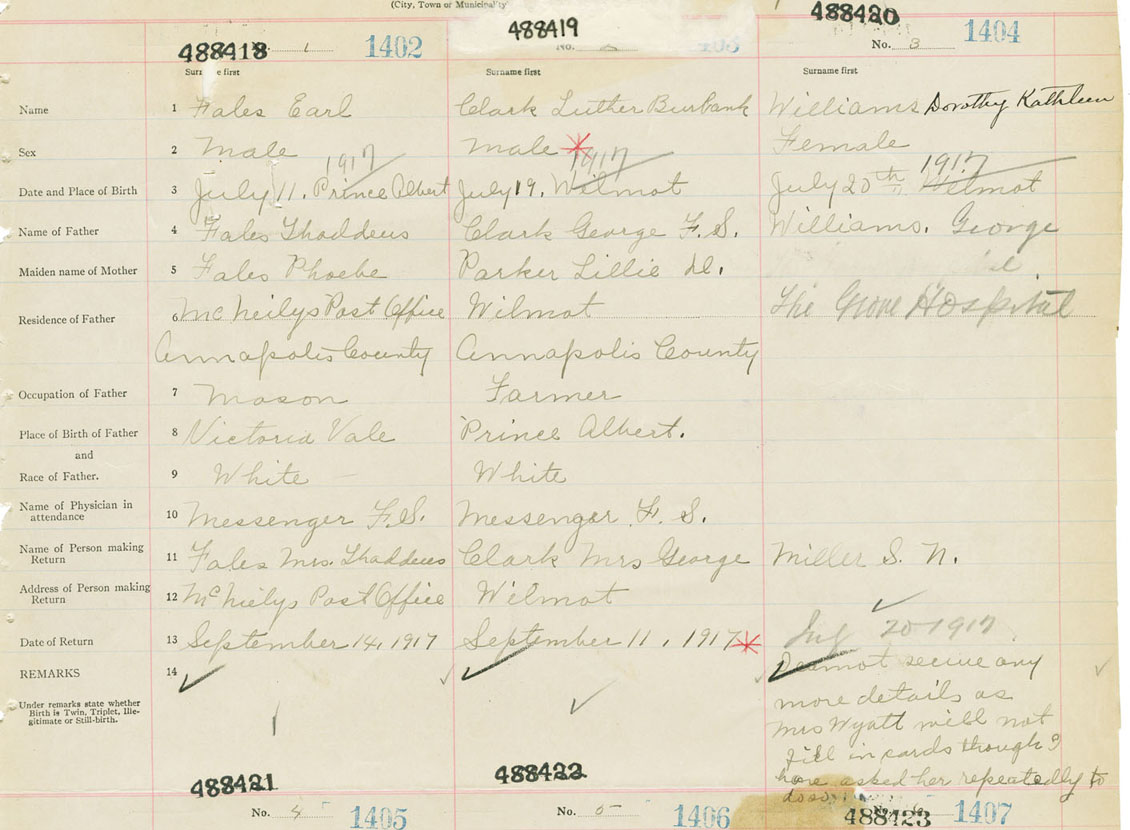 (City, Town or Municipality
488418 488419 488420
1 1402 No. 1403 No. 3 1404
Surname first Surname first Surname first
Name 1 Fales Earl Clark Luther Burbank Williams Dorothy Kathleen
Sex 2 Male Male Female
1917 1917 1917
Date and Place of Birth 3 July 11. Prince Albert July 19. Wilmot July 20th Wilmot
Name of Father 4 Fales Thaddeus Clark George F.S. Williams. George
Maiden name of Mother 5 Fales Phoebe Parker Lillie
Residence of Father 6 McNeilys Post Office Wilmot The Grove Hospital
Annapolis County Annapolis County
Occupation of Father 7 Mason Farmer
Place of Birth of Father 8 Victoria Vale Prince Albert.
and
Race of Father. 9 White White
Name of Physician in
attendance 10 Messenger F.S. Messenger F. S.
Name of Person making
Return 11 Fales Mrs. Thaddeus Clark Mrs George Miller S. N.
Address of Person making
Return 12 McNeilys Post Office Wilmot
Date of Return 13 September 14, 1917 September 11, 1917 20 1917
REMARKS 14 cannot secure any
Under remarks state whether
Birth is Twin, Triplet, Ille-
gitimate or Still-birth.
more details as
Mrs Wyatt will not
fill in cards though I
have asked her repeatedly to
do so
488421 488422 488423
No. 4 1405 No. 5 1406 1407